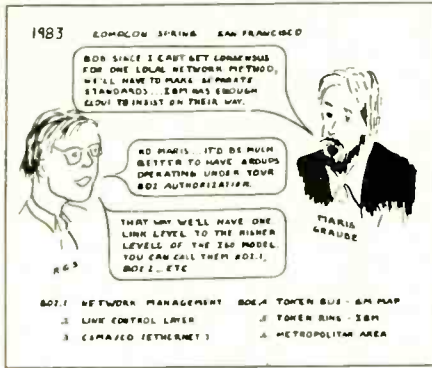 1983 COMPCON SPRING SAN FRANCISCO
BOB SINCE I CAN'T GET CONSENSUS
FOR ONE LOCAL NETWORK METHOD,
WE'LL HAVE TO MAKE SEPARATE
STANDARDS... IBM HAS ENOUGH
CLOUT TO INSIST ON THEIR WAY.
NO MARIS... IT'D BE MUCH
BETTER TO HAVE GROUPS
OPERATING UNDER YOUR
802 AUTHORIZATION.
MARIS
GRAUBE
THAT WAY WE'LL HAVE ONE
LINK LEVEL TO THE HIGHER
LEVELS OF THE ISO MODEL.
YOU CAN CALL THEM 802.1,
802.2... ETC
802.1 NETWORK MANAGEMENT 802.4 TOKEN BUS - GM MAP
.2 LINK CONTROL LAYER .5 TOKEN RING - IBM
.3 CSMA/CD (ETHERNET) .6 METROPOLITAN AREA